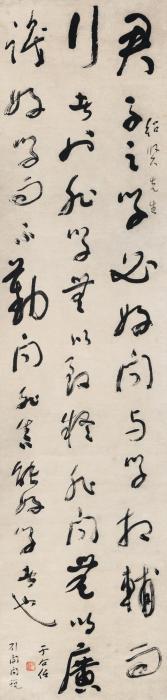 紹賢先生
君子之學必好問与學相輔而
行者也非學無以致疑非問無以廣
識好學而不勤問非真能好學者也
于右任
引劉開問說